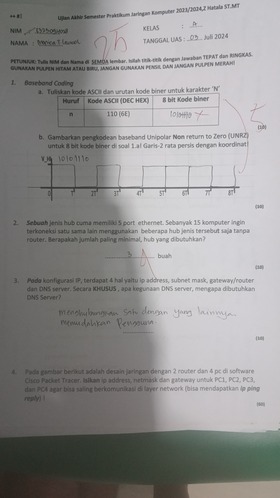 Ujian Akhir Semester Praktikum Jaringan Komputer 2023/2024,2 Hatala ST.MT
NIM :
KELAS : A
NAMA :
TANGGAL UAS : 03 Juli 2024
PETUNJUK: Tulis NIM dan Nama di SEMUA lembar. Isilah titik-titik dengan Jawaban TEPAT dan RINGKAS.
GUNAKAN PULPEN HITAM ATAU BIRU, JANGAN GUNAKAN PENSIL DAN JANGAN PULPEN MERAH!
1. Baseband Coding
a. Tuliskan kode ASCII dan urutan kode biner untuk karakter 'N'
Huruf Kode ASCII (DEC HEX) 8 bit Kode biner
n 110 (6E)
(10)
b. Gambarkan pengkodean baseband Unipolar Non return to Zero (UNRZ)
untuk 8 bit kode biner di soal 1.a! Garis-2 rata persis dengan koordinat!
(10)
2. Sebuah jenis hub cuma memiliki 5 port ethernet. Sebanyak 15 komputer ingin
terkoneksi satu sama lain menggunakan beberapa hub jenis tersebut saja tanpa
router. Berapakah jumlah paling minimal, hub yang dibutuhkan?
3 buah
(10)
3. Pada konfigurasi IP, terdapat 4 hal yaitu ip address, subnet mask, gateway/router
dan DNS server. Secara KHUSUS, apa kegunaan DNS server, mengapa dibutuhkan
DNS Server?
menghubungkan satu dengan yang lainnya
memudahkan Pengguna
(10)
4. Pada gambar berikut adalah desain jaringan dengan 2 router dan 4 pc di software
Cisco Packet Tracer. Isikan ip address, netmask dan gateway untuk PC1, PC2, PC3,
dan PC4 agar bisa saling berkomunikasi di layer network (bisa mendapatkan ip ping
reply) !
(40)